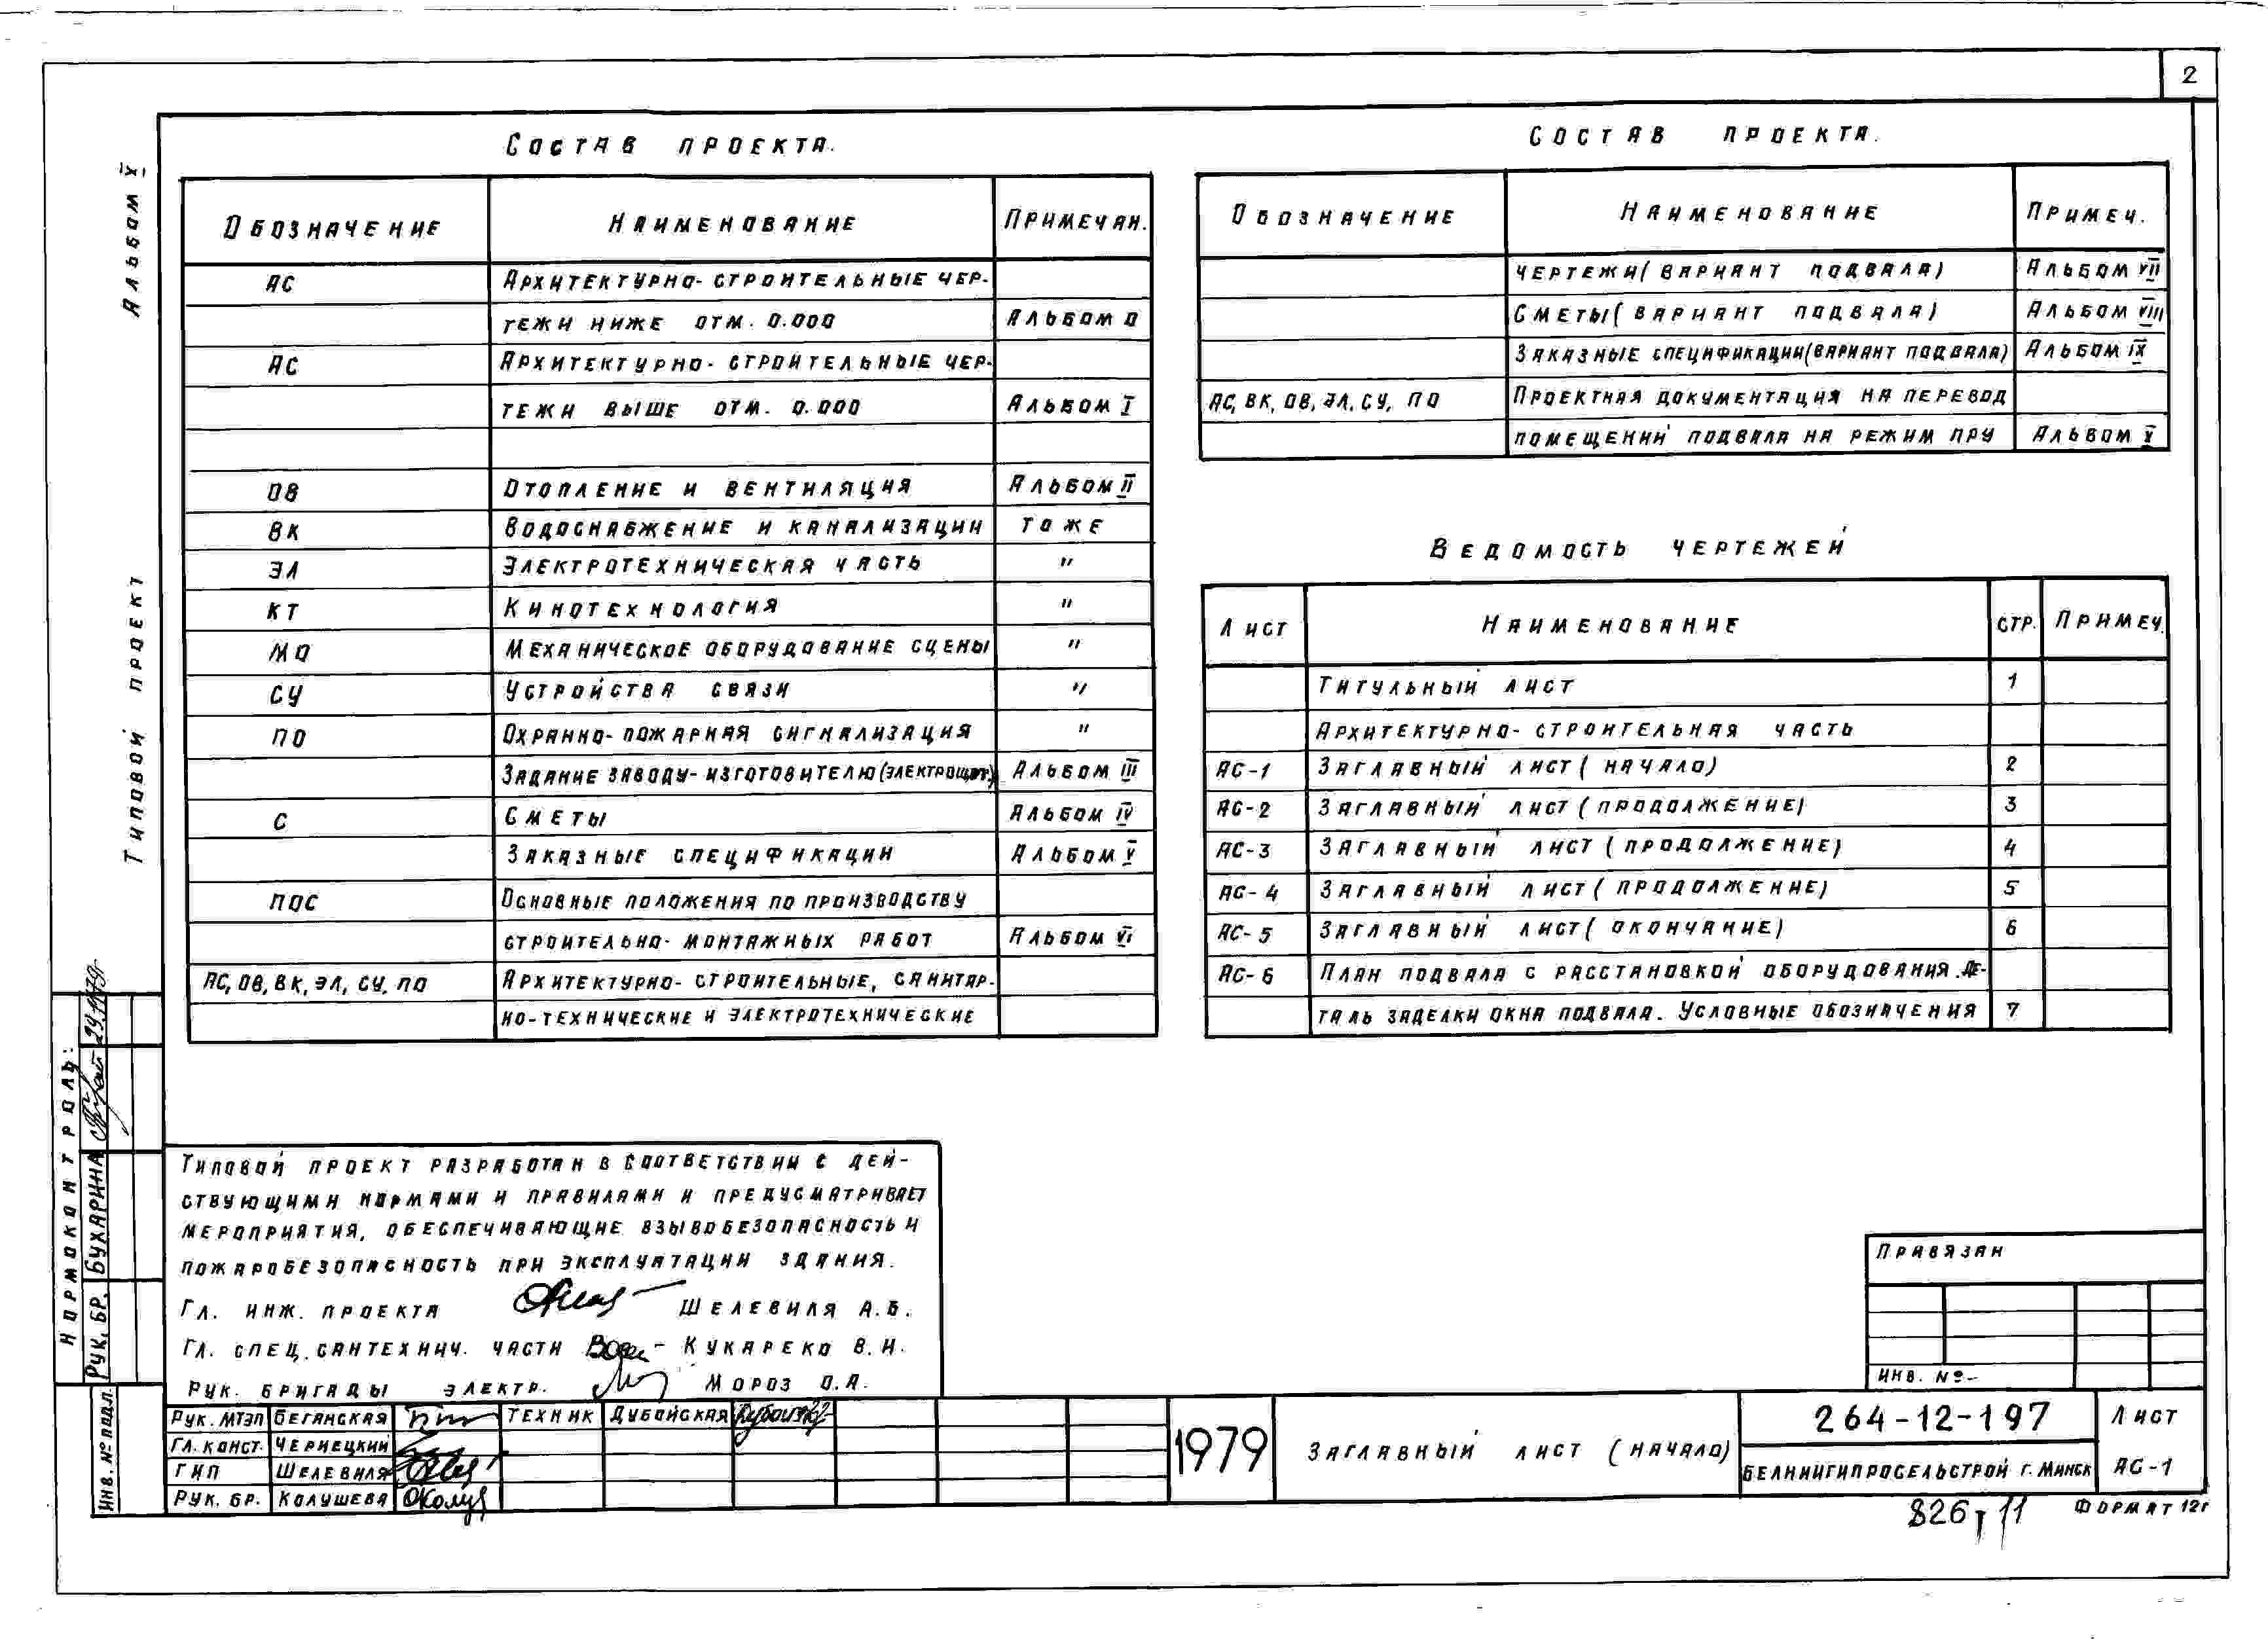 2
Альбом X
Типовой проект
Состав проекта.
Обозначение Наименование Примечан.
АС Архитектурно-строительные чер-
тежи ниже отм. 0.000 Альбом 0
АС Архитектурно-строительные чер-
тежи выше отм. 0.000 Альбом I
ОВ Отопление и вентиляция Альбом II
ВК Водоснабжение и канализации То же
ЭЛ Электротехническая часть "
КТ Кинотехнология "
МО Механическое оборудование сцены "
СУ Устройства связи "
ПО Охранно-пожарная сигнализация "
Задание заводу-изготовителю (электрощит.) Альбом III
С Сметы Альбом IV
Заказные спецификации Альбом V
ПОС Основные положения по производству
строительно-монтажных работ Альбом VI
АС, ОВ, ВК, ЭЛ, СУ, ПО Архитектурно-строительные, санитар-
но-технические и электротехнические
Состав проекта.
Обозначение Наименование Примеч.
чертежи (вариант подвала) Альбом VII
Сметы (вариант подвала) Альбом VIII
Заказные спецификации (вариант подвала) Альбом IX
АС, ВК, ОВ, ЭЛ, СУ, ПО Проектная документация на перевод
помещений подвала на режим ПРУ Альбом X
Ведомость чертежей
Лист Наименование стр. Примеч.
Титульный лист 1
Архитектурно-строительная часть
АС-1 Заглавный лист (начало) 2
АС-2 Заглавный лист (продолжение) 3
АС-3 Заглавный лист (продолжение) 4
АС-4 Заглавный лист (продолжение) 5
АС-5 Заглавный лист (окончание) 6
АС-6 План подвала с расстановкой оборудования. Де-
таль заделки окна подвала. Условные обозначения 7
Нормоконтроль:
Рук. бр. Бухарина 29.11.79г.
Инв. № подл.
Типовой проект разработан в соответствии с дей-
ствующими нормами и правилами и предусматривает
мероприятия, обеспечивающие взывобезопасность и
пожаробезопасность при эксплуатации здания.
Гл. инж. проекта Шелевиля А.Б.
Гл. спец. сантехнич. части Кукареко В.И.
Рук. бригады электр. Мороз О.А.
Привязан
Инв. №-
Рук. МТЭП Беганская Техник Дубойская
Гл. конст. Чернецкий
ГИП Шелевиля
Рук. бр. Колушева
1979
Заглавный лист (начало)
264-12-197
Белниигипросельстрой г. Минск
Лист
АС-1
Формат 12г